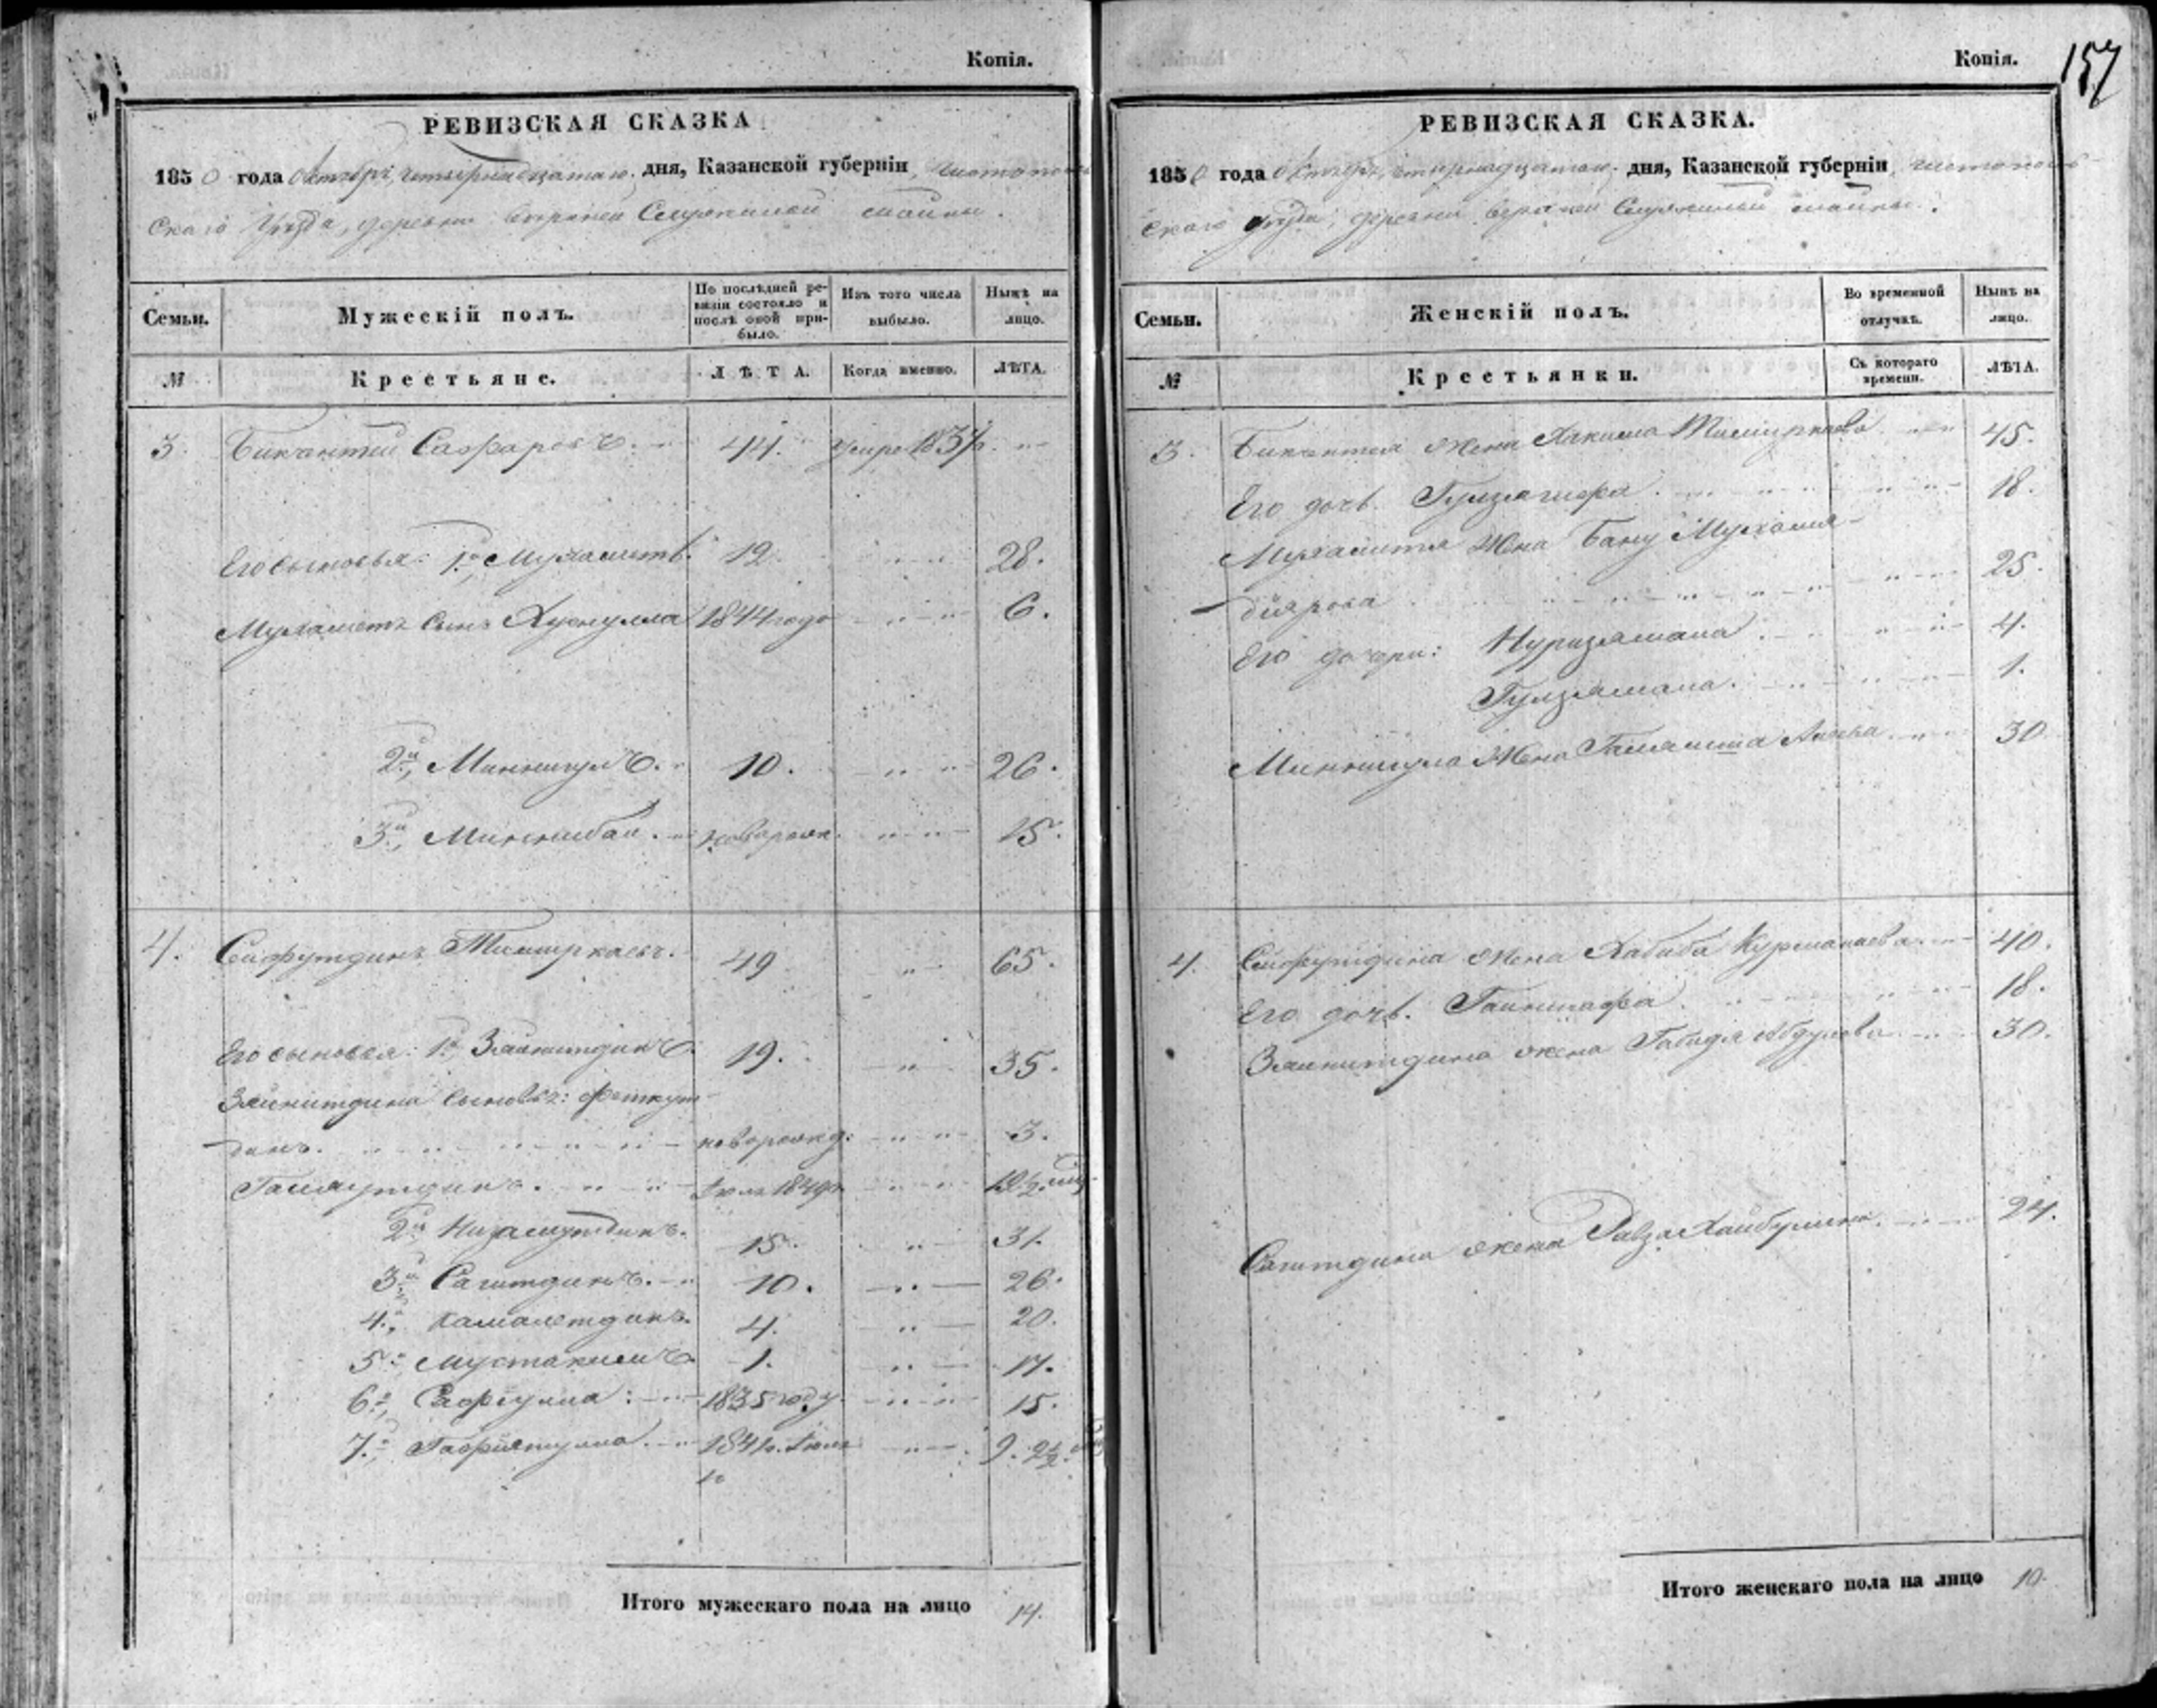 Копія.
РЕВИЗСКАЯ СКАЗКА
1850 года Октября четырнадцатаго дня, Казанской губерніи, Чистополь-
скаго Уѣзда, деревни Верхней
Семьи. Мужескій полъ. По послѣдней ре-визіи состояло и послѣ оной при-было. Изъ того числа выбыло. Нынѣ на лицо.
№ Крестьяне. ЛѢТА. Когда именно. ЛѢТА.
3. Бикчантей Сафаровъ. 44. умре 183
Его сыновья: 1й, Мухаметъ. 12. 28.
Мухаметъ сынъ Хуснулла 1844 года 6.
2й, Миннигулъ. 10. 26.
3й, Миннибай. новорожд. 15.
4. Сейфутдинъ Тимиркаевъ. 49 65.
Его сыновья: 1й, Зайнитдинъ. 19. 35.
Зайнитдина сыновья: Фаткут-
динъ. новорожд: 3.
1849
2й Низамутдинъ. 15. 31.
3й Сагитдинъ. 10. 26.
4й, Камалетдинъ. 4. 20.
5й Мустакимъ 1. 17.
6й, Сафіулла: 1835 году. 15.
7й, 1841 9.
Итого мужескаго пола на лицо 14.
Копія. 157
РЕВИЗСКАЯ СКАЗКА.
1850 года Октября четырнадцатаго дня, Казанской губерніи, Чистополь-
скаго уѣзда, деревни Верхней
Семьи. Женскій полъ. Во временной отлучкѣ. Нынѣ на лицо.
№ Крестьянки. Съ котораго времени. ЛѢТА.
3. Бикчантея жена Хакима Тимиркаева 45.
Его дочь. 18.
Мухаметя жена Бану Мухамя-
діярова 25.
Его дочери: Нуризямала 4.
Гулзямала. 1.
Миннигула жена 30
4. Сейфутдина жена Хабиба Курманаева 40.
Его дочь. 18.
Зайнитдина жена Габидя Абдулова 30.
Сагитдина жена 24.
Итого женскаго пола на лицо 10.